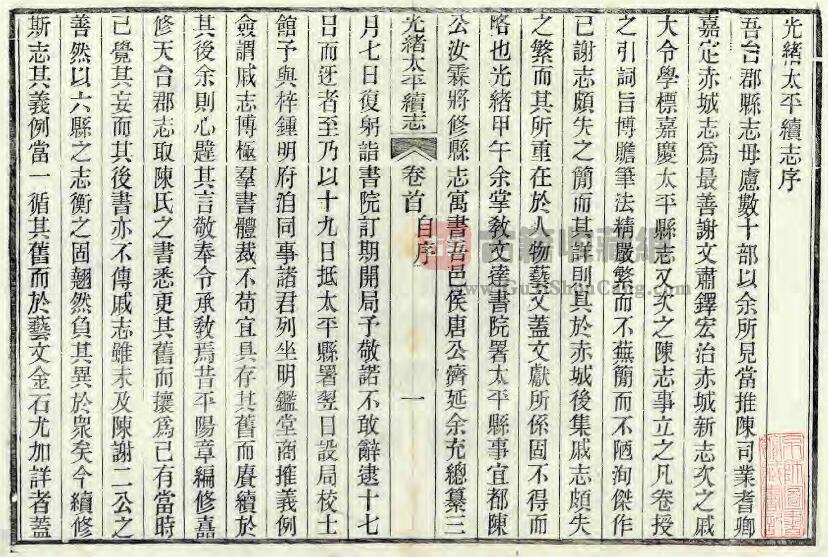 光緒太平續志序
吾台郡縣志毋慮數十部以余所見當推陳司業耆卿
嘉定赤城志爲最善謝文肅鐸宏治赤城新志次之戚
大令學標嘉慶太平縣志又次之陳志事立之凡卷授
之引詞旨博贍筆法精嚴繁而不蕪簡而不陋洵傑作
已謝志頗失之簡而其詳則具於赤城後集戚志頗失
之繁而其所重在於人物藝文蓋文獻所係固不得而
略也光緒甲午余掌敎文達書院署太平縣事宜都陳
公汝霖將修縣志寓書吾邑侯唐公濟延余充總纂三
光緒太平續志
卷首
自序
一
月七日復躬詣書院訂期開局予敬諾不敢辭逮十七
日而迓者至乃以十九日抵太平縣署翌日設局校士
館予與梓鍾明府洎同事諸君列坐明鑑堂商推義例
僉謂戚志博極羣書體裁不苟宜具存其舊而賡續於
其後余則心韙其言敬奉令承敎焉昔平陽章編修嘉
修天台郡志取陳氏之書悉更其舊而攘爲己有當時
已覺其妄而其後書亦不傳戚志雖未及陳謝二公之
善然以六縣之志衡之固翹然負其異於衆矣今續修
斯志其義例當一循其舊而於藝文金石尤加詳者蓋
古籍收藏網
www.GuJiShouCang.com